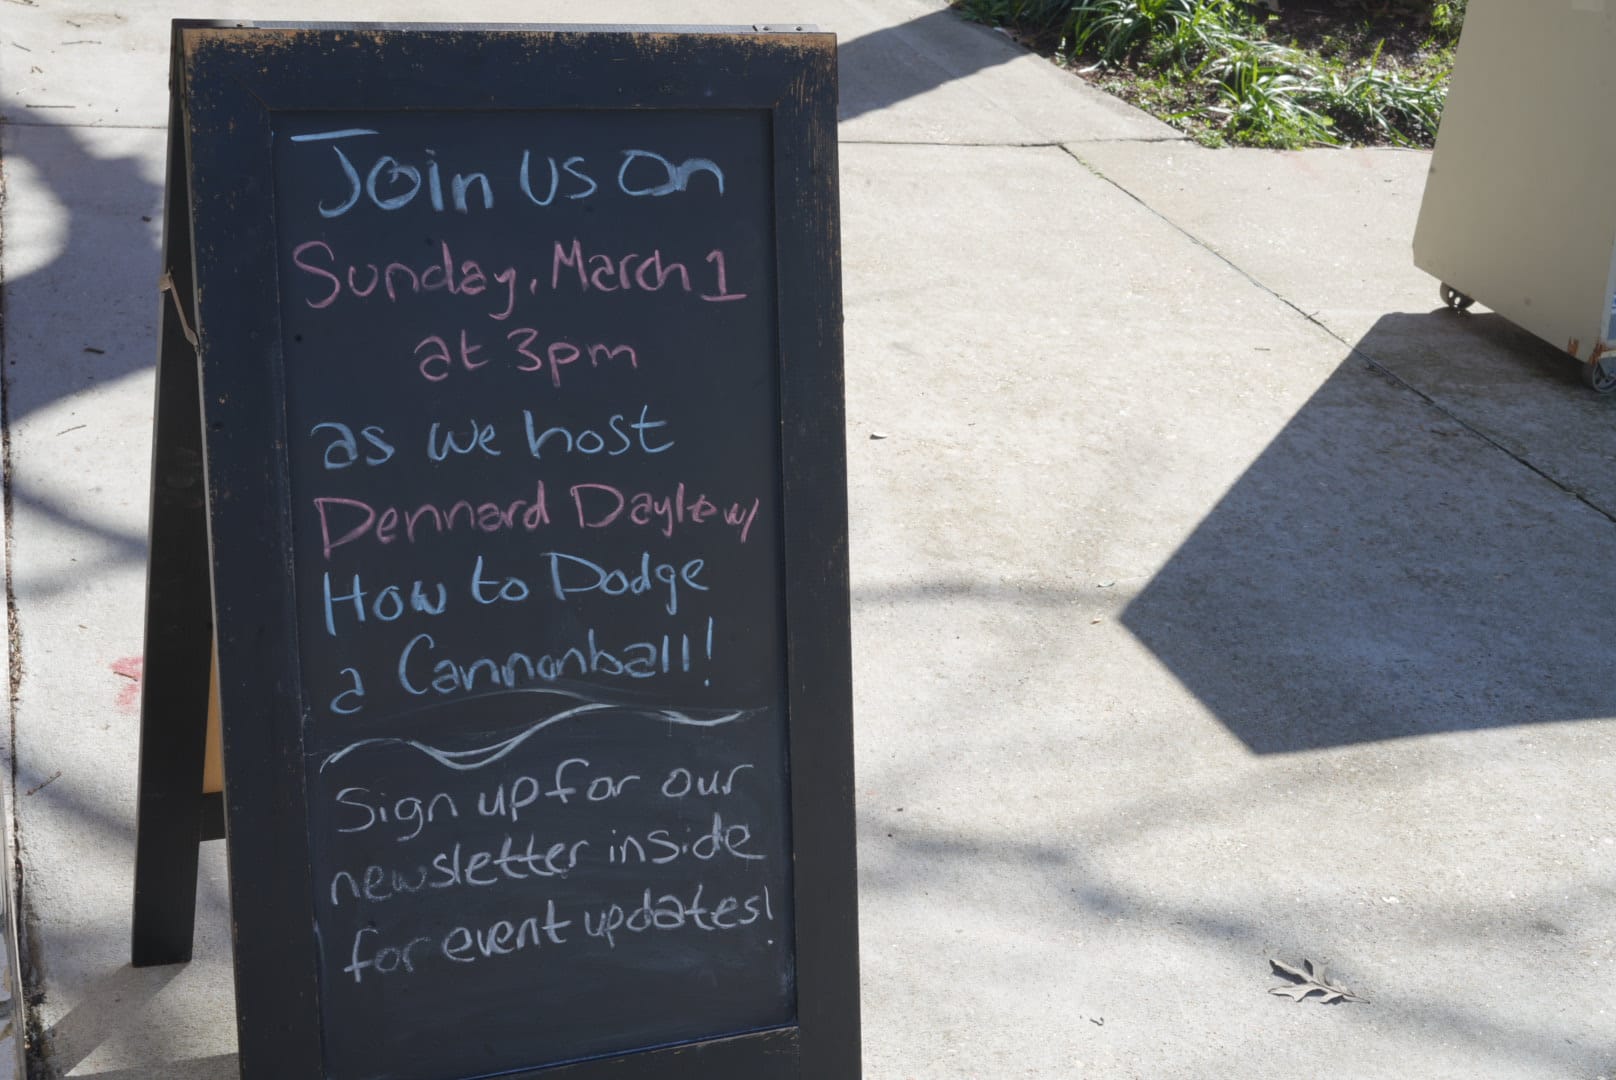 Join us on
Sunday, March 1
at 3pm
as we host
Dennard Dayle w/
How to Dodge
a Cannonball!
Sign up for our
newsletter inside
for event updates!